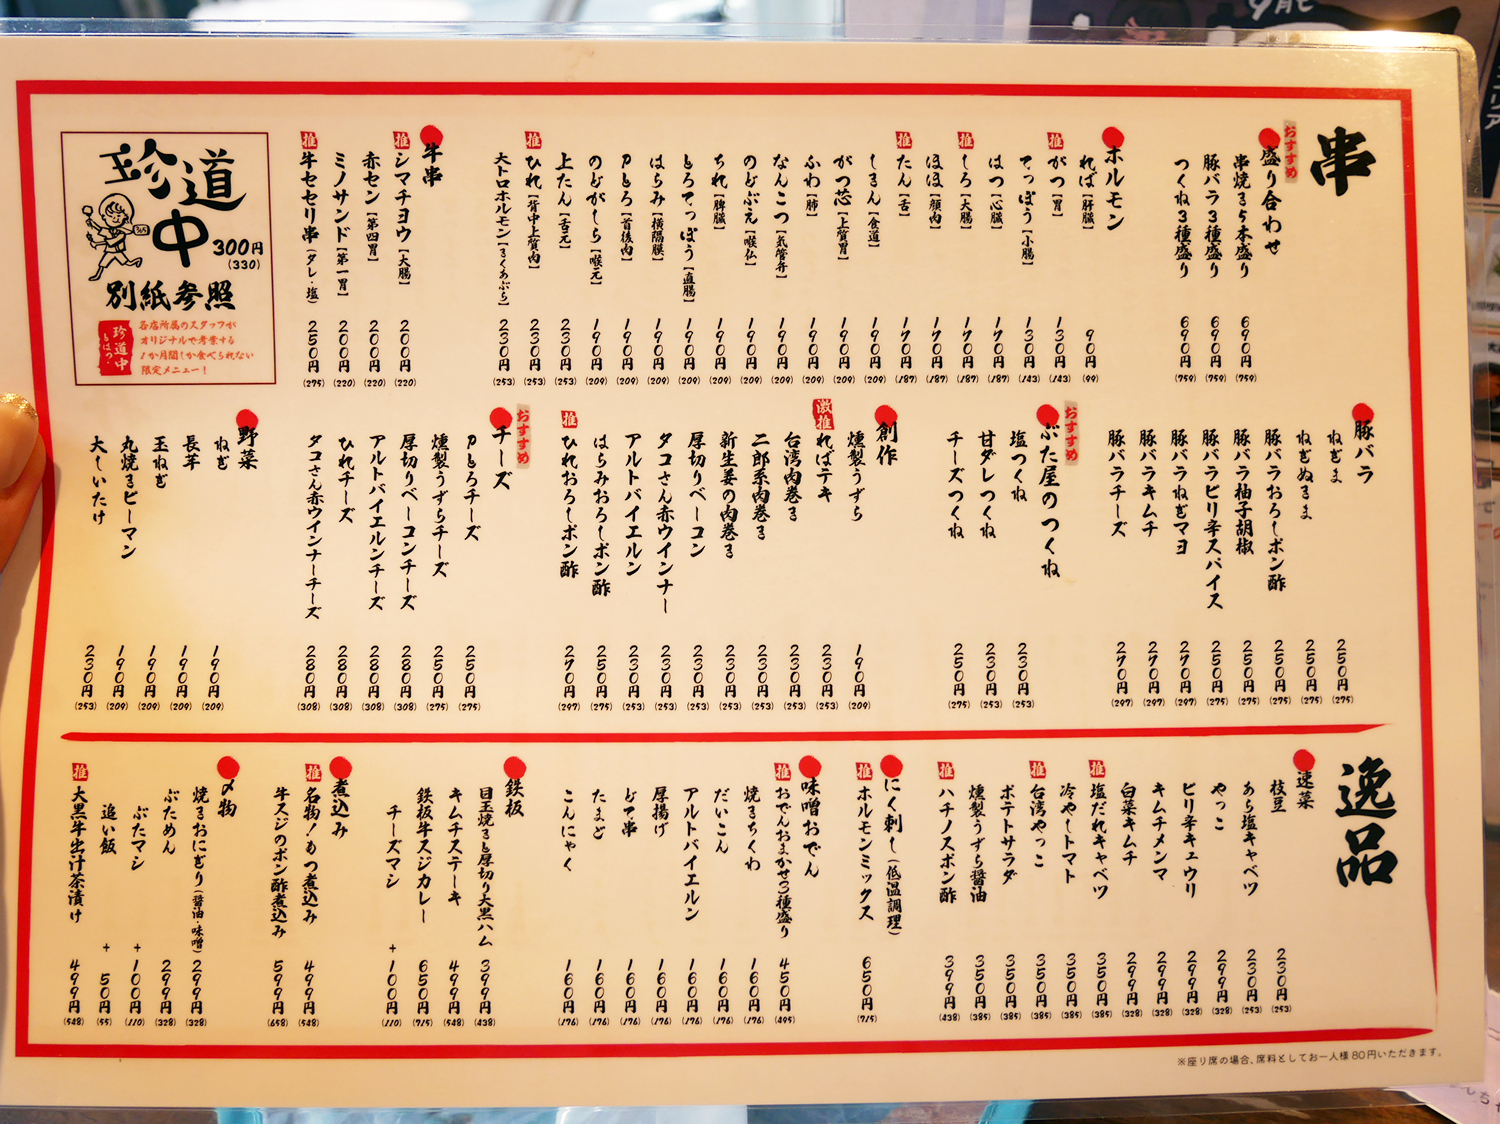 串
おすすめ
盛り合わせ
串焼き5本盛り 690円 (759)
豚バラ3種盛り 690円 (759)
つくね3種盛り 690円 (759)
ホルモン
れば【肝臓】 90円 (99)
推 がつ【胃】 130円 (143)
てっぽう【小腸】 130円 (143)
はつ【心臓】 170円 (187)
推 しろ【大腸】 170円 (187)
ほほ【顔肉】 170円 (187)
推 たん【舌】 170円 (187)
しきん【食道】 190円 (209)
がつ芯【上質胃】 190円 (209)
ふわ【肺】 190円 (209)
なんこつ【気管弁】 190円 (209)
のどぶえ【喉仏】 190円 (209)
ちれ【脾臓】 190円 (209)
とろてっぽう【直腸】 190円 (209)
はらみ【横隔膜】 190円 (209)
Pとろ【首後肉】 190円 (209)
のどがしら【喉元】 190円 (209)
上たん【舌元】 230円 (253)
推 ひれ【背中上質肉】 230円 (253)
大トロホルモン【きくあぶら】 230円 (253)
牛串
推 シマチョウ【大腸】 200円 (220)
赤セン【第四胃】 200円 (220)
ミノサンド【第一胃】 200円 (220)
推 牛セセリ串【タレ・塩】 250円 (275)
珍道中
300円
(330)
別紙参照
珍道中
とは?
各店所属のスタッフが
オリジナルで考案する
1か月間しか食べられない
限定メニュー!
豚バラ
ねぎま 250円 (275)
ねぎぬきま 250円 (275)
豚バラおろしポン酢 250円 (275)
豚バラ柚子胡椒 250円 (275)
豚バラピリ辛スパイス 250円 (275)
豚バラねぎマヨ 270円 (297)
豚バラキムチ 270円 (297)
豚バラチーズ 270円 (297)
おすすめ
ぶた屋のつくね
塩つくね 230円 (253)
甘ダレつくね 230円 (253)
チーズつくね 250円 (275)
創作
燻製うずら 190円 (209)
激推 ればテキ 230円 (253)
台湾肉巻き 230円 (253)
二郎系肉巻き 230円 (253)
新生姜の肉巻き 230円 (253)
厚切りベーコン 230円 (253)
タコさん赤ウインナー 230円 (253)
アルトバイエルン 230円 (253)
はらみおろしポン酢 250円 (275)
推 ひれおろしポン酢 270円 (297)
おすすめ
チーズ
Pとろチーズ 250円 (275)
燻製うずらチーズ 250円 (275)
厚切りベーコンチーズ 280円 (308)
アルトバイエルンチーズ 280円 (308)
ひれチーズ 280円 (308)
タコさん赤ウインナーチーズ 280円 (308)
野菜
ねぎ 190円 (209)
長芋 190円 (209)
玉ねぎ 190円 (209)
丸焼きピーマン 190円 (209)
大しいたけ 230円 (253)
逸品
速菜
枝豆 230円 (253)
あら塩キャベツ 230円 (253)
やっこ 299円 (328)
ピリ辛キュウリ 299円 (328)
キムチメンマ 299円 (328)
白菜キムチ 299円 (328)
推 塩だれキャベツ 350円 (385)
冷やしトマト 350円 (385)
推 台湾やっこ 350円 (385)
ポテトサラダ 350円 (385)
燻製うずら醤油 350円 (385)
推 ハチノスポン酢 399円 (438)
にく刺し(低温調理)
推 ホルモンミックス 650円 (715)
味噌おでん
推 おでんおまかせ3種盛り 450円 (495)
焼きちくわ 160円 (176)
だいこん 160円 (176)
アルトバイエルン 160円 (176)
厚揚げ 160円 (176)
どて串 160円 (176)
たまご 160円 (176)
こんにゃく 160円 (176)
鉄板
目玉焼きと厚切り大黒ハム 399円 (438)
キムチステーキ 499円 (548)
鉄板牛スジカレー 650円 (715)
チーズマシ +100円 (110)
煮込み
推 名物!もつ煮込み 499円 (548)
牛スジのポン酢煮込み 599円 (658)
〆物
焼きおにぎり(醤油・味噌) 299円 (328)
ぶためん 299円 (328)
ぶたマシ +100円 (110)
追い飯 +50円 (55)
推 大黒牛出汁茶漬け 499円 (548)
※座り席の場合、席料としてお一人様80円いただきます。
9月